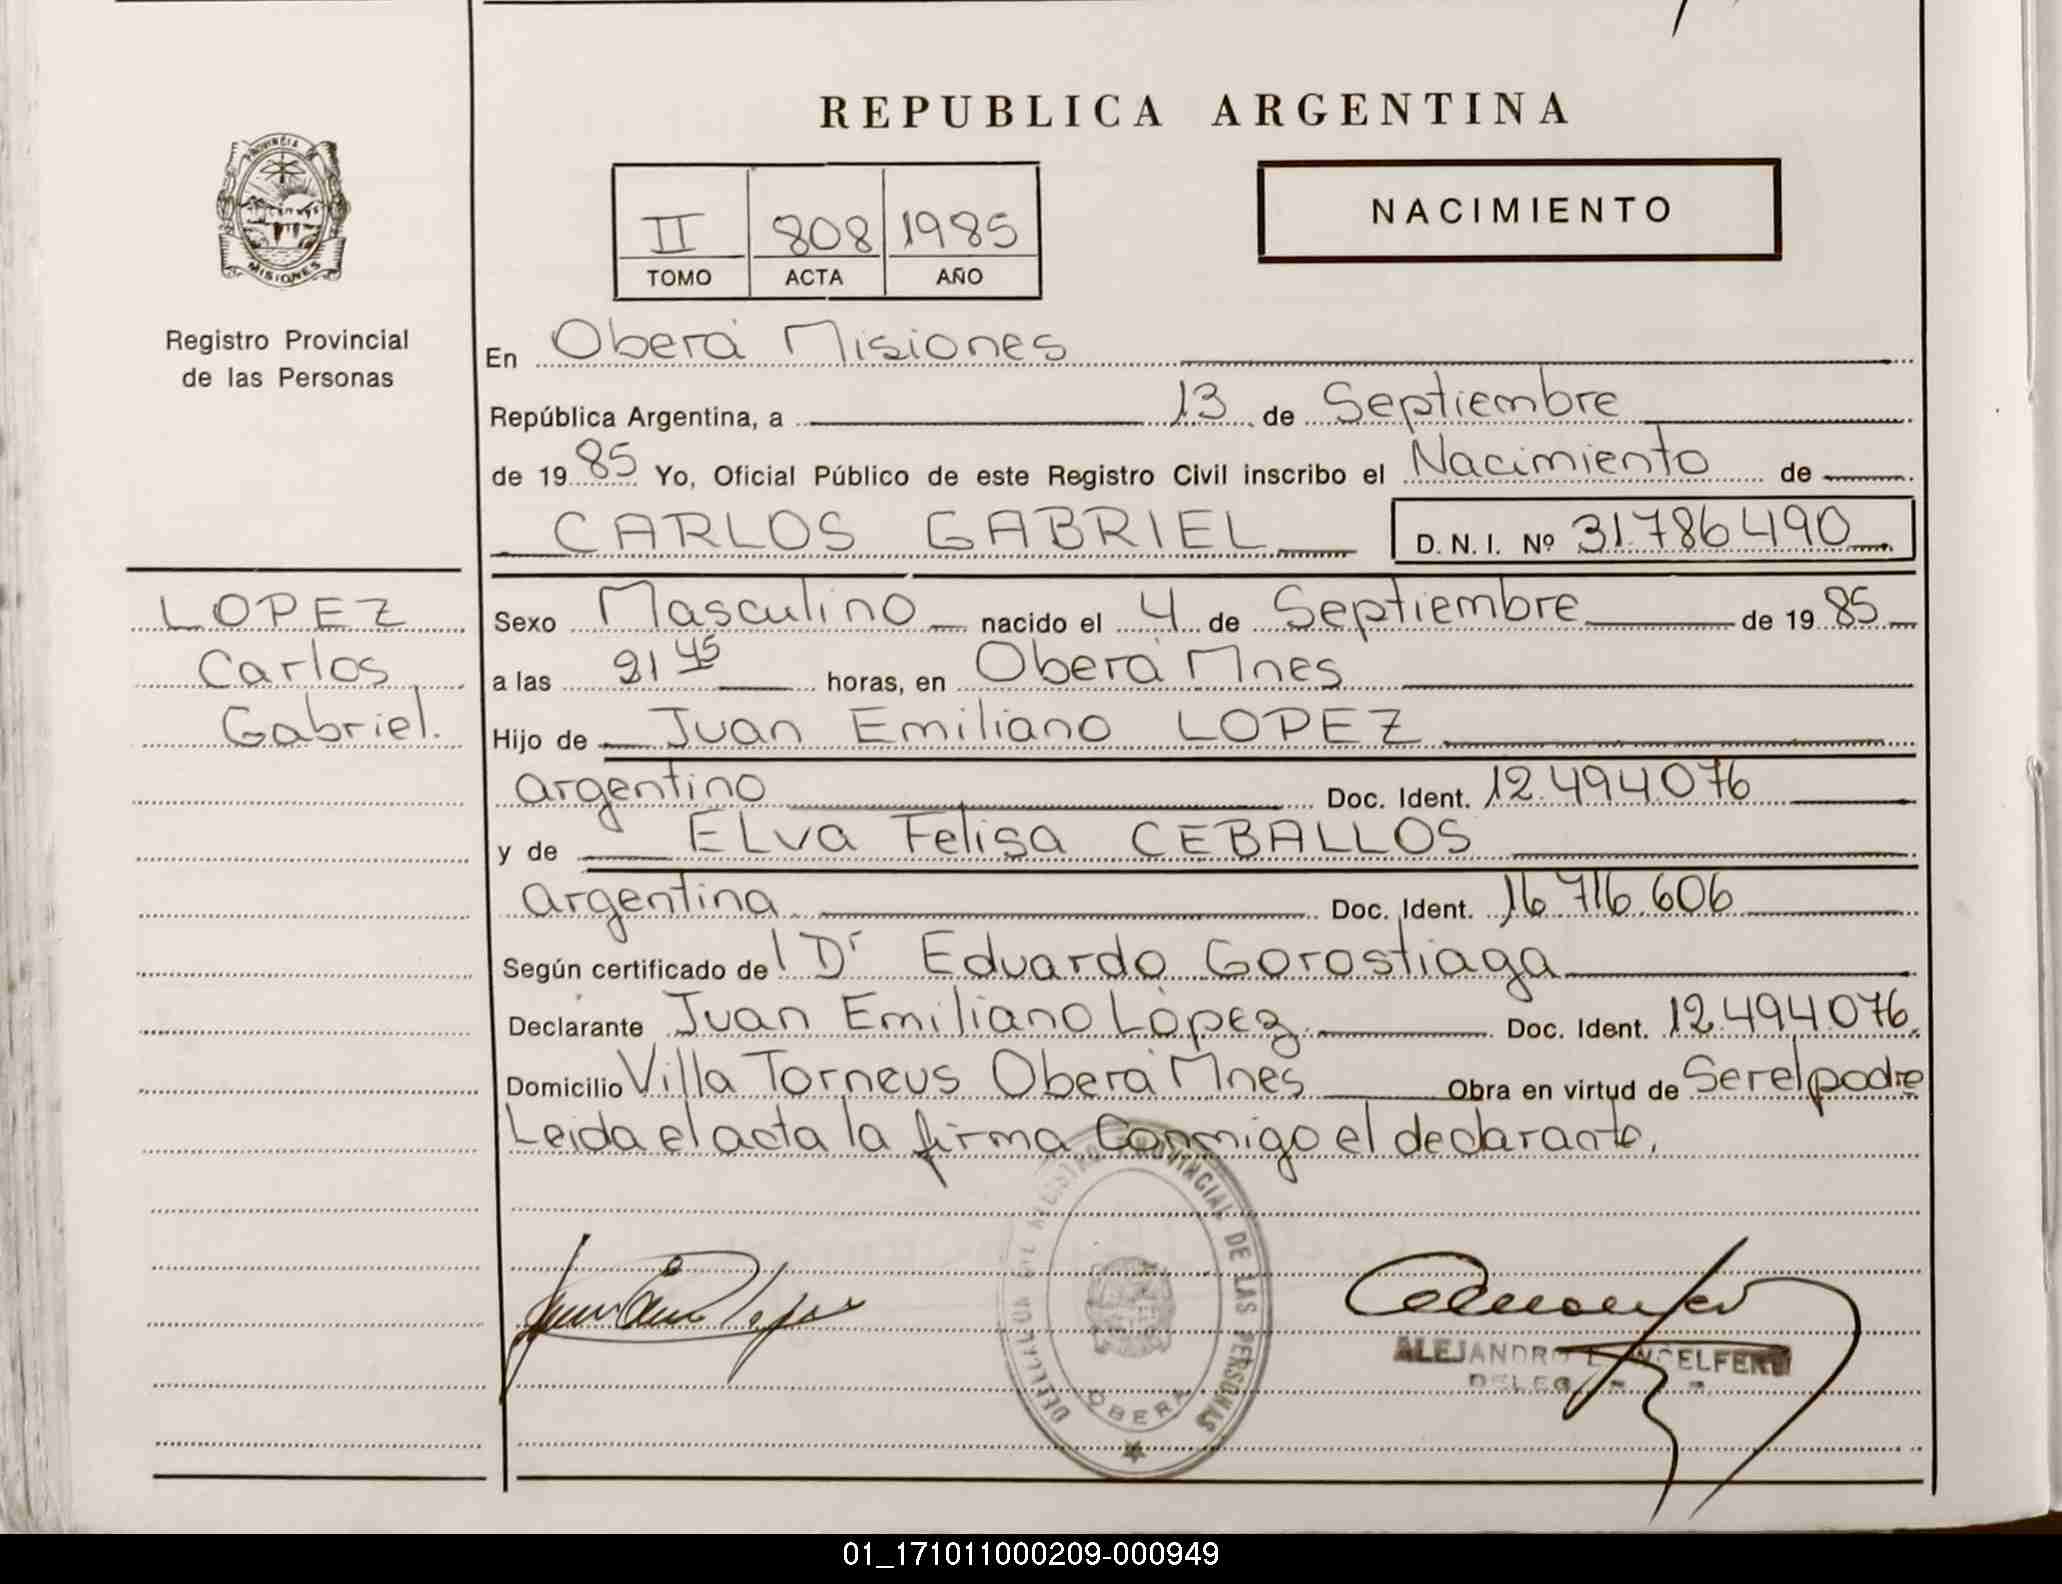 REPUBLICA ARGENTINA
PROVINCIA DE
MISIONES
Registro Provincial
de las Personas
II 808 1985
TOMO ACTA AÑO
NACIMIENTO
En Oberá Misiones
República Argentina, a 13 de Septiembre
de 1985 Yo, Oficial Público de este Registro Civil inscribo el Nacimiento de
CARLOS GABRIEL D. N. I. Nº 31.786.490
LOPEZ
Carlos
Gabriel.
Sexo Masculino nacido el 4 de Septiembre de 1985
a las 21 45 horas, en Oberá Mnes
Hijo de Juan Emiliano LOPEZ
argentino Doc. Ident. 12.494.076
y de ELva Felisa CEBALLOS
argentina Doc. Ident. 16.716.606
Según certificado del Dr Eduardo Gorostiaga
Declarante Juan Emiliano López Doc. Ident. 12.494.076.
Domicilio Villa Torneus Oberá Mnes Obra en virtud de Ser el padre
Leida el acta la firma Conmigo el declarante.
REGISTRO PROVINCIAL DE LAS PERSONAS
OBERA
ALEJANDRO
01_171011000209-000949